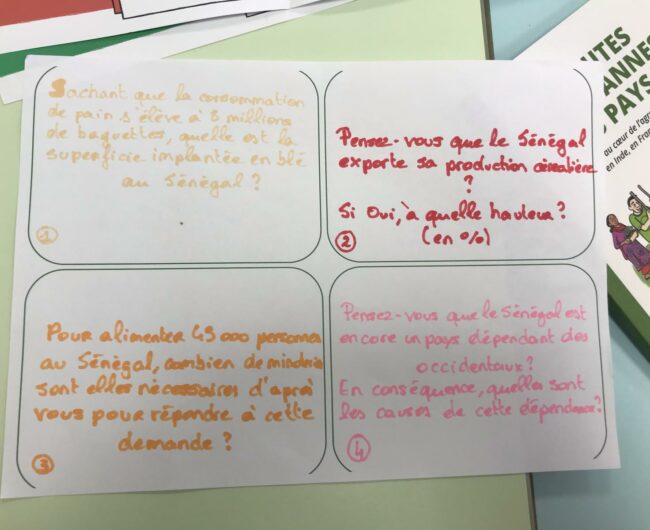 Sachant que la consommation
de pain s'élève à 8 millions
de baguettes, quelle est la
superficie implantée en blé
au Sénégal ?
1
Pensez-vous que le Sénégal
exporte sa production céréalière
?
Si Oui, à quelle hauteur ?
(en %)
2
Pour alimenter 45 000 personnes
au Sénégal, combien de minoterie
sont elles nécessaires d'après
vous pour répondre à cette
demande ?
3
Pensez-vous que le Sénégal est
encore un pays dépendant des
occidentaux ?
En conséquence, quelles sont
les causes de cette dépendance ?
4
UTES
ANNES
PAYS
au cœur de l'agr
en Inde, en Fran